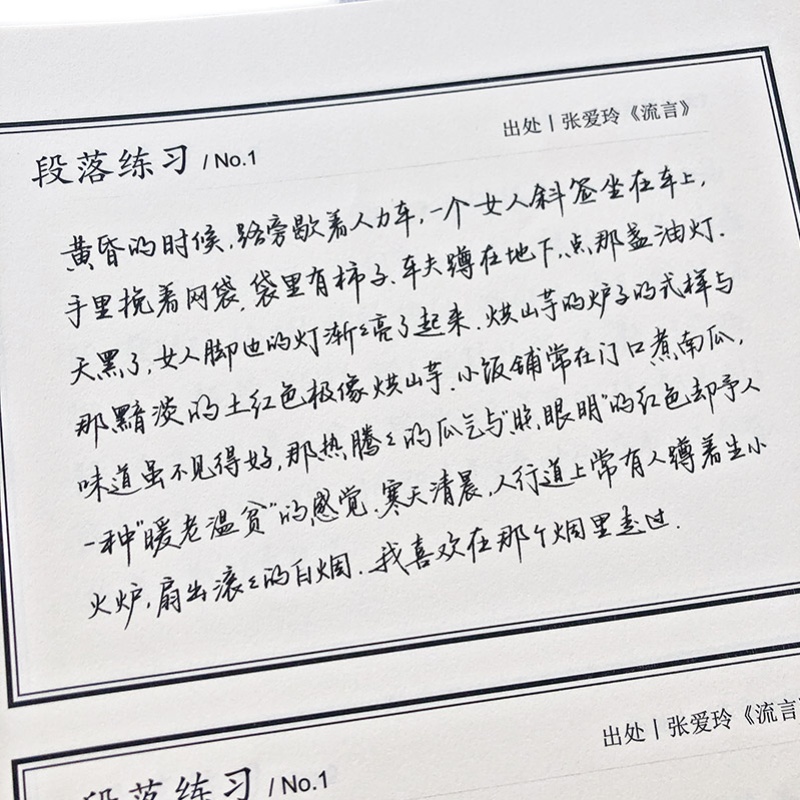 段落练习 / No.1
出处丨张爱玲《流言》
黄昏的时候,路旁歇着人力车,一个女人斜签坐在车上,
手里挽着网袋,袋里有柿子.车夫蹲在地下,点那盏油灯.
天黑了,女人脚边的灯渐々亮了起来.烘山芋的炉子的式样与
那黯淡的土红色极像烘山芋.小饭铺常在门口煮南瓜,
味道虽不见得好,那热腾々的瓜气与"照眼明"的红色却予人
一种"暖老温贫"的感觉.寒天清晨,人行道上常有人蹲着生小
火炉,扇出滚々的白烟.我喜欢在那个烟里走过.
出处丨张爱玲《流言
段落练习 / No.1